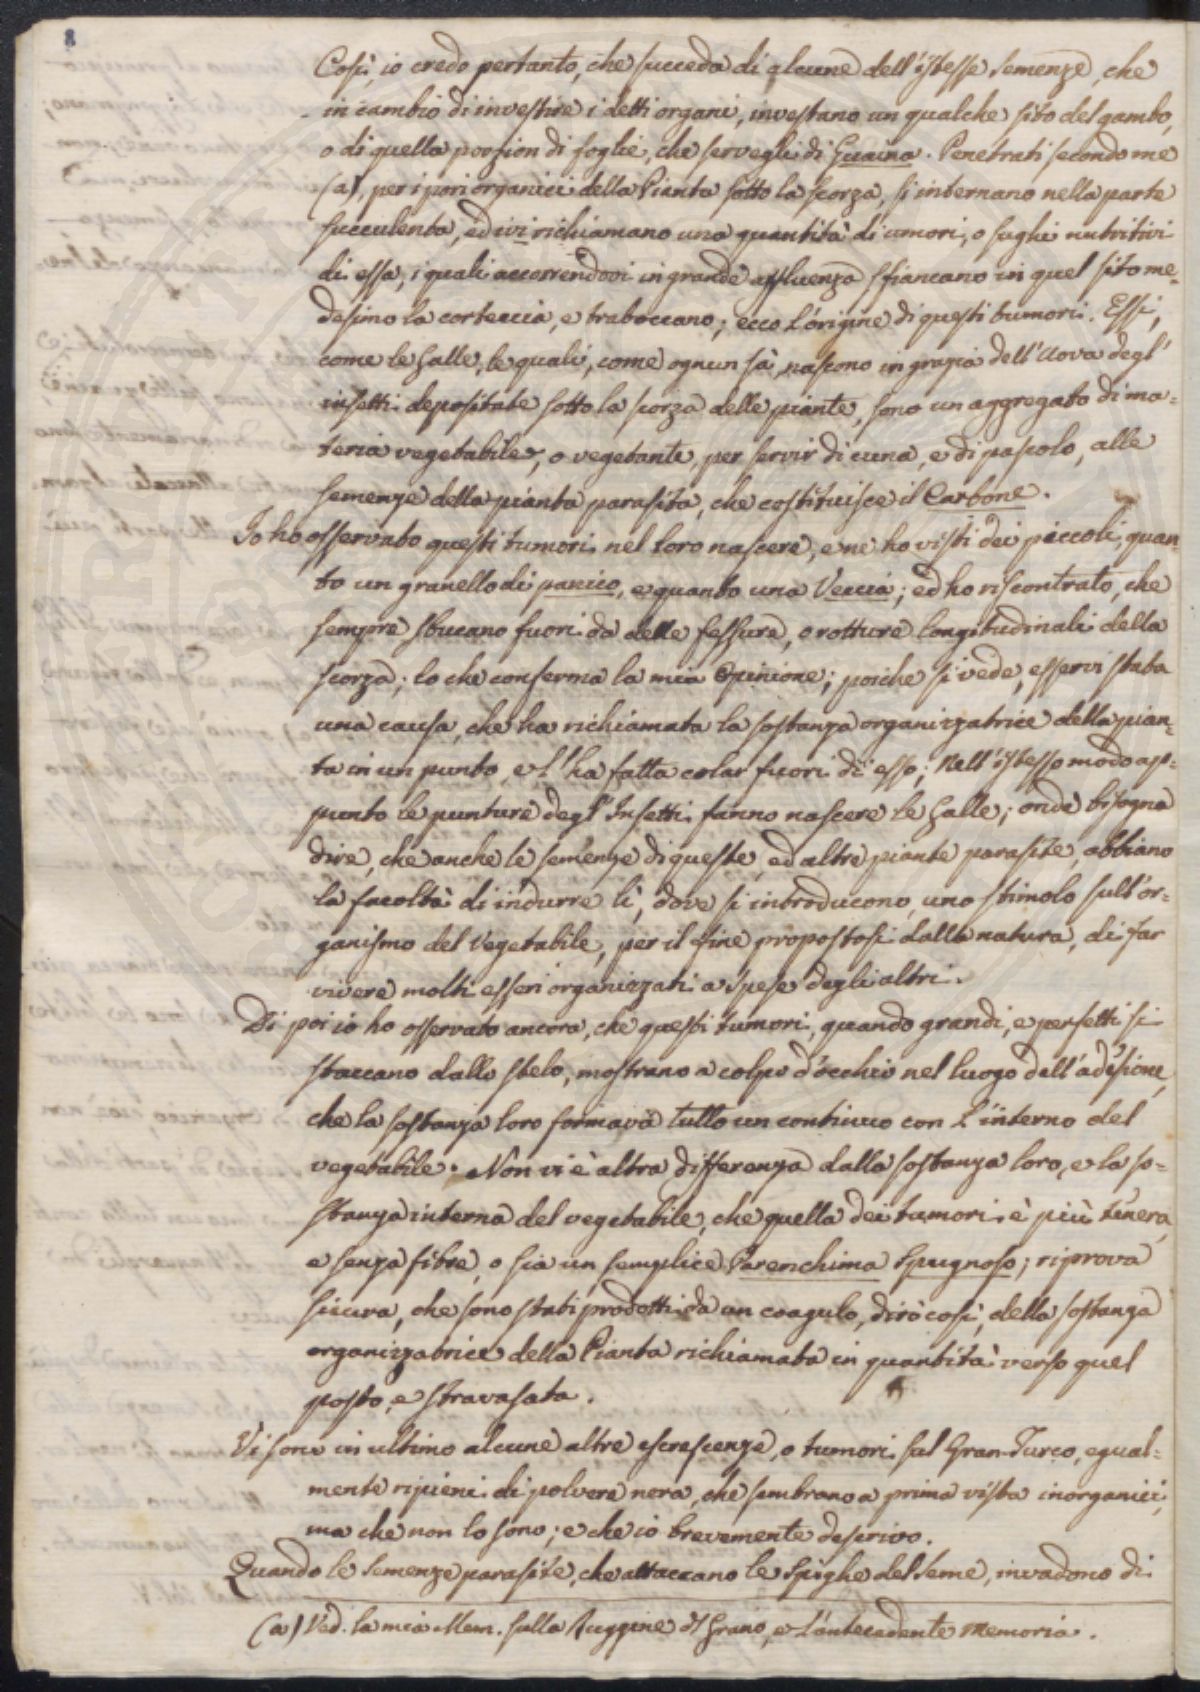 8
Così, io credo pertanto, che succeda di alcune dell'istesse semenze, che
in cambio di investire i detti organi, investano un qualche sito del gambo,
o di quella porzion di foglie, che servegli di Guaina. Penetrati secondo me
(a), per i pori organici della Pianta sotto la scorza, si internano nella parte
succulenta, ed ivi richiamano una quantità di umori, o sughi nutritivi
di essa, i quali accorrendovi in grande affluenza sfiancano in quel sito me-
desimo la corteccia, e traboccano; ecco l'origine di questi tumori. Essi,
come le Galle, le quali, come ognun sà, nascono in grazia dell'Uova degl'
insetti depositate sotto la scorza delle piante, sono un aggregato di ma-
teria vegetabile, o vegetante, per servir di cuna, e di pascolo, alle
semenze della pianta parasita, che costituisce il Carbone.
Io ho osservato questi tumori nel loro nascere, e ne ho visti dei piccoli, quan-
to un granello di panico, e quanto una Veccia; ed ho riscontrato, che
sempre sbucano fuori da delle fessure, o rotture longitudinali della
scorza; lo che conferma la mia Opinione; poiche si vede, esservi stata
una causa, che ha richiamata la sostanza organizzatrice della pian-
ta in un punto, e l'ha fatta colar fuori di esso; Nell'istesso modo ap-
punto le punture degl'Insetti fanno nascere le Galle; onde bisogna
dire, che anche le semenze di queste, ed altre piante parasite, abbiano
la facoltà di indurre lì, dove si introducono, uno stimolo sull'or-
ganismo del Vegetabile, per il fine propostosi dalla natura, di far
vivere molti esseri organizzati a spese degli altri.
Di poi io ho osservato ancora, che questi tumori, quando grandi, e perfetti si
staccano dallo stelo, mostrano a colpo d'occhio nel luogo dell'adesione,
che la sostanza loro formava tutto un continuo con l'interno del
vegetabile. Non vi è altra differenza dalla sostanza loro, e la so-
stanza interna del vegetabile, che quella dei tumori è più tenera,
e senza fibre, o sia un semplice Parenchima spugnoso; riprova
sicura, che sono stati prodotti da un coagulo, dirò così, della sostanza
organizzatrice della Pianta richiamata in quantità verso quel
posto, e stravasata.
Vi sono in ultimo alcune altre escrescenze, o tumori sul Gran-Turco, egual-
mente ripieni di polvere nera, che sembrano a prima vista inorganici,
ma che non lo sono; e che io brevemente descrivo.
Quando le semenze parasite, che attaccano le Spighe del Seme, invadono di
(a) Ved. la mia Mem. sulla Ruggine del Grano, e l'antecedente Memoria.